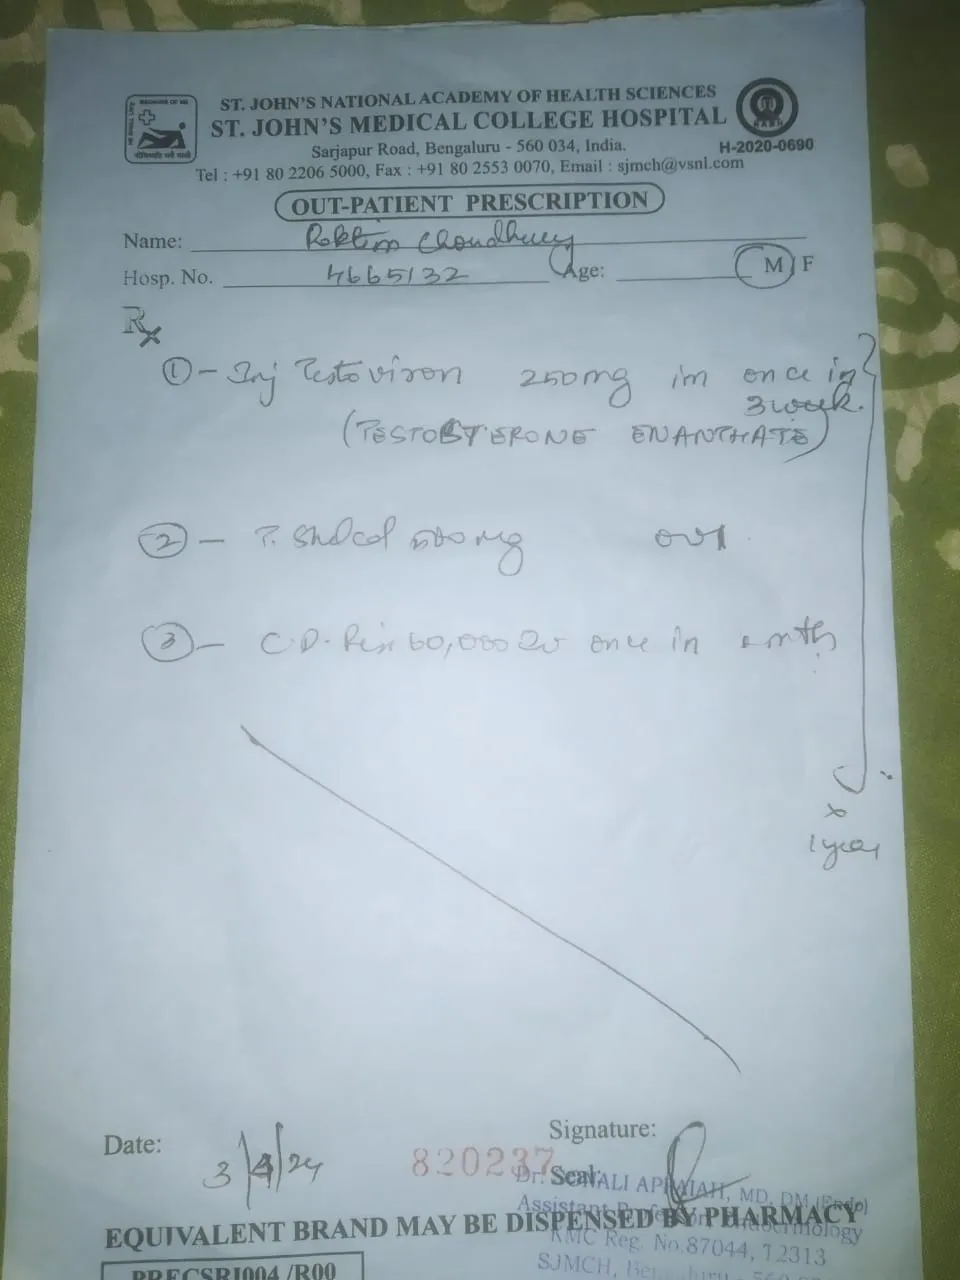 ST. JOHN'S NATIONAL ACADEMY OF HEALTH SCIENCES
ST. JOHN'S MEDICAL COLLEGE HOSPITAL
Sarjapur Road, Bengaluru - 560 034, India.
H-2020-0690
Tel : +91 80 2206 5000, Fax : +91 80 2553 0070, Email : sjmch@vsnl.com
OUT-PATIENT PRESCRIPTION
Name: Choudhury
Hosp. No. 4665132 Age: M F
Rx
① - Inj Testoviron 250mg im once in
3 week.
(TESTOSTERONE ENANTHATE)
② - T. Shelcal 500 mg
③ - 60,000 once in month
x
1 year
Date: 3/4/24
Signature:
820237
Seal:
APPAIAH, MD, DM (Endo)
Assistant Professor Endocrinology
KMC Reg. No.87044, 12313
EQUIVALENT BRAND MAY BE DISPENSED BY PHARMACY
SJMCH,
PRECSRI004 /R00